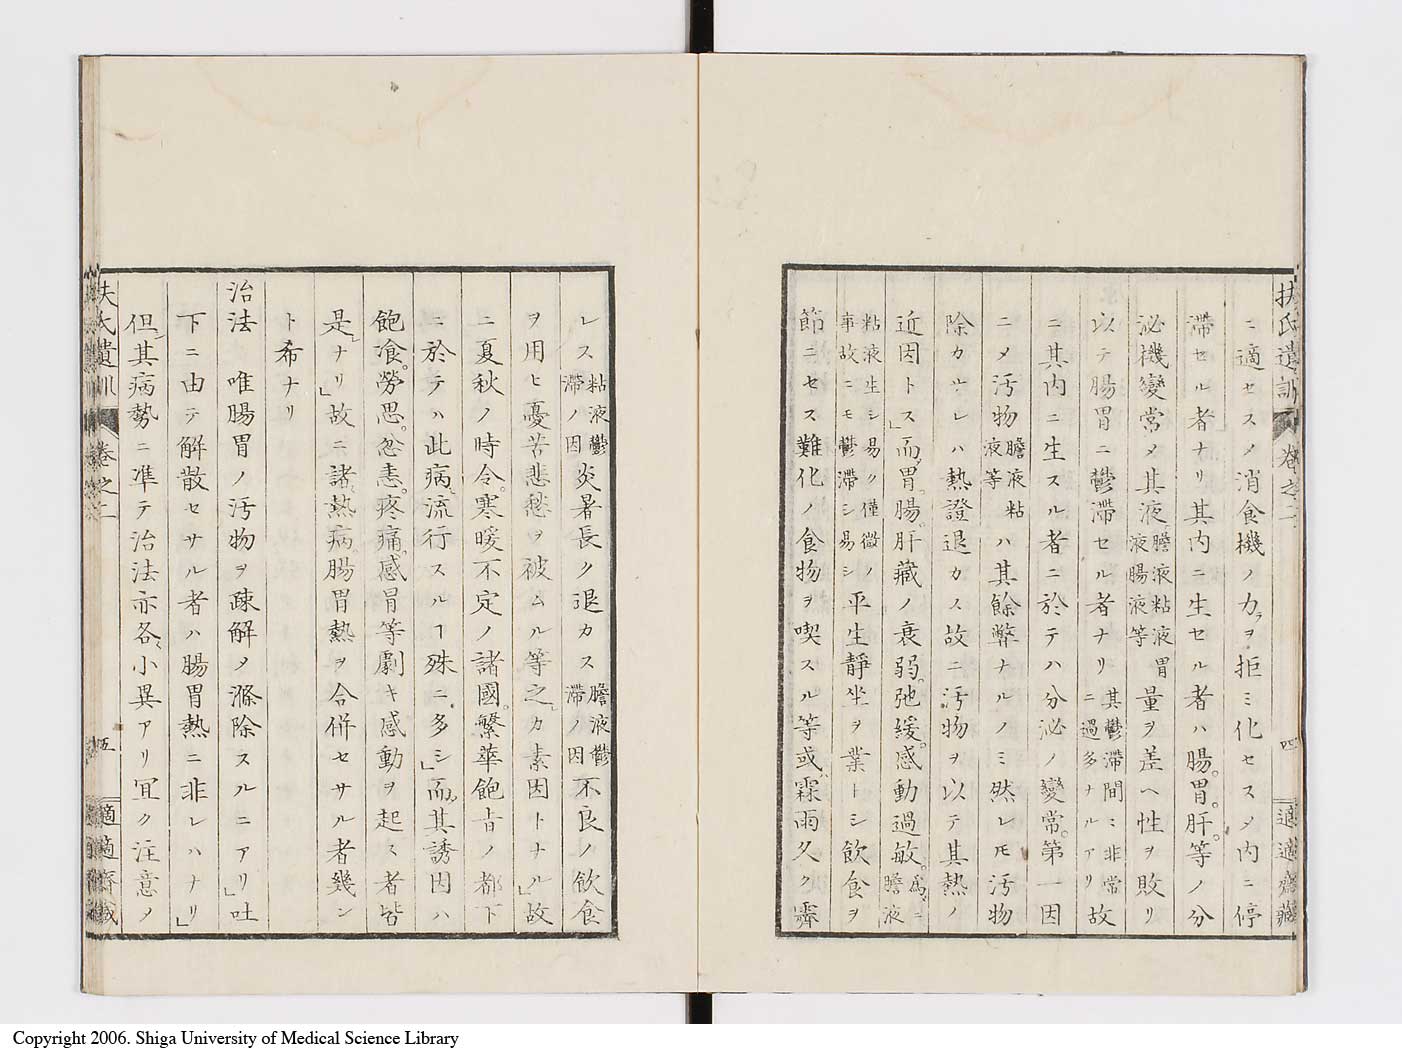 扶氏遺訓 卷之二 四 適適齋藏
ニ適セスメ消食機ノ力ヲ拒ミ化セスメ内ニ停
滯セル者ナリ其内ニ生セル者ハ腸。胃。肝。等ノ分
泌機變常メ其液膽液粘液胃液腸液等量ヲ差ヘ性ヲ敗リ
以テ腸胃ニ鬱滯セル者ナリ其鬱滯間ミ非常ニ過多ナルアリ故
ニ其内ニ生スル者ニ於テハ分泌ノ變常。第一因
ニメ汚物膽液粘液等ハ其餘弊ナルノミ然レ𪜈汚物
除カサレハ熱證退カス故ニ汚物ヲ以テ其熱ノ
近因トス」而胃。腸。肝藏ノ衰弱。弛緩。感動過敏。爲ニ膽液
粘液生シ易ク僅微ノ事故ニモ鬱滯シ易シ平生靜坐ヲ業トシ飲食ヲ
節ニセス難化ノ食物ヲ喫スル等或ハ霖雨久ク霽
レス粘液鬱滯ノ因炎暑長ク退カス膽液鬱滯ノ因不良ノ飲食
ヲ用ヒ憂苦悲愁ヲ被ムル等之カ素因トナル」故
ニ夏秋ノ時令。寒暖不定ノ諸國。繁華飽旨ノ都下
ニ於テハ此病流行スルヿ殊ニ多シ」而其誘因ハ
飽飡。勞思。忿恚。疼痛。感冒等劇キ感動ヲ起ス者皆
是ナリ」故ニ諸熱病。腸胃熱ヲ合併セサル者幾ン
ト希ナリ
治法 唯腸胃ノ汚物ヲ疎解メ滌除スルニアリ」吐
下ニ由テ解散セサル者ハ腸胃熱ニ非レハナリ」
但其病勢ニ準テ治法亦各小異アリ冝ク注意メ
扶氏遺訓 卷之二 五 適適齋藏
Copyright 2006. Shiga University of Medical Science Library